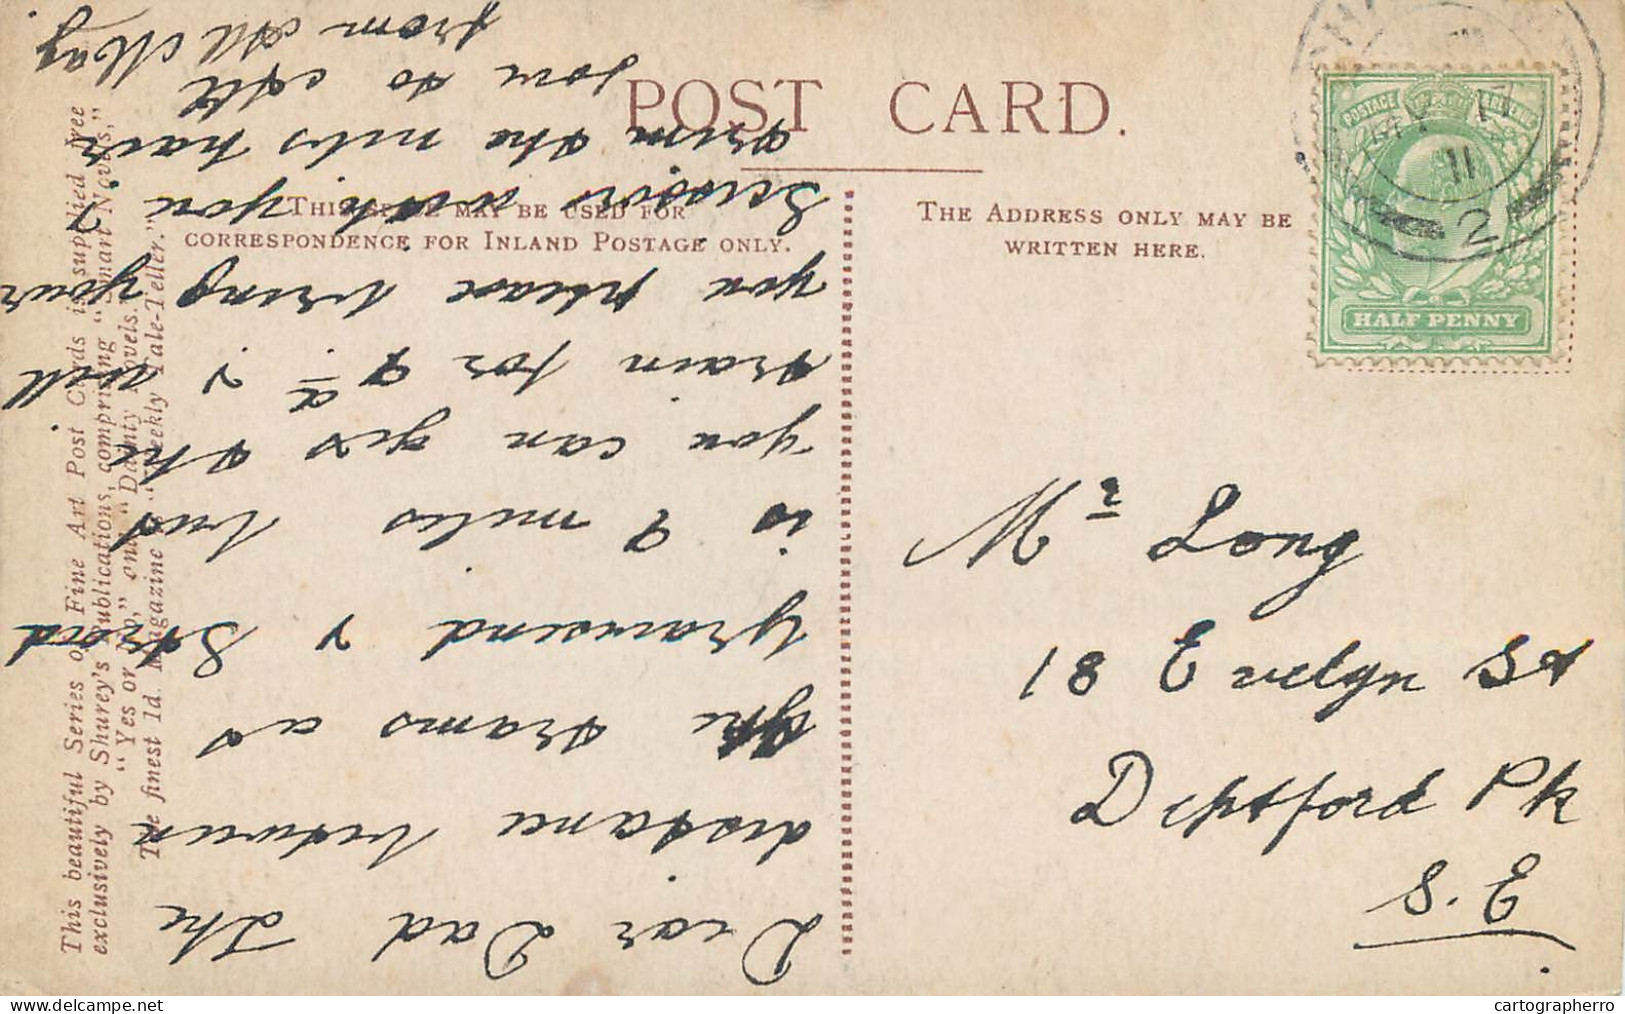 POST CARD.
THIS SPACE MAY BE USED FOR
CORRESPONDENCE FOR INLAND POSTAGE ONLY.
THE ADDRESS ONLY MAY BE
WRITTEN HERE.
This beautiful Series of Fine Art Post Cards is supplied free
exclusively by Shurey's Publications, comprising "Smart Novels,"
"Yes or No," and "Dainty Novels."
The finest 1d. Magazine is "Weekly Tale-Teller."
POSTAGE REVENUE
HALF PENNY
11
2
Dear Dad The
distance between
the trams at
Gravesend & Strood
is 9 miles but
you can get the
train for 4d & will
you please bring your
Scissors with you &
trim the nits hair
love to all
from All May
Mr Long
18 Evelyn St
Deptford Pk
S.E.
cartographerro